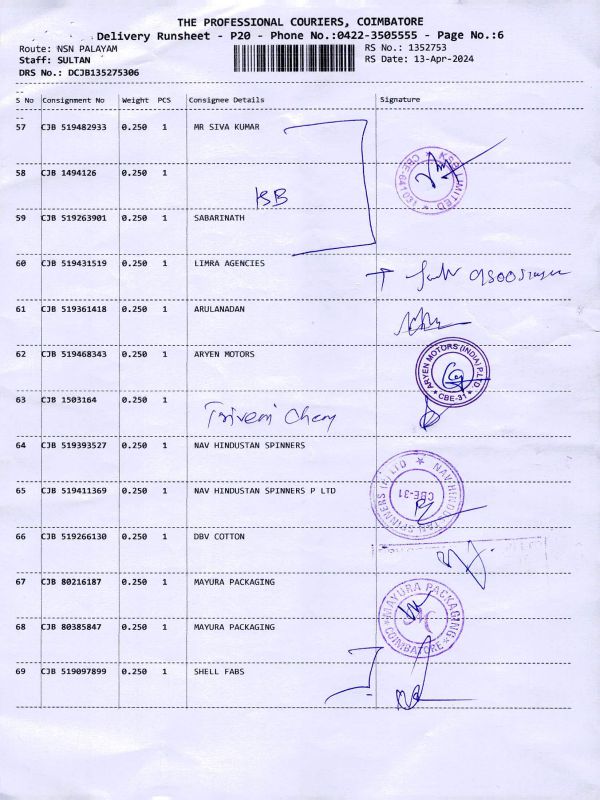 THE PROFESSIONAL COURIERS, COIMBATORE
Delivery Runsheet - P20 - Phone No.:0422-3505555 - Page No.:6
Route: NSN PALAYAM
RS No.: 1352753
Staff: SULTAN
RS Date: 13-Apr-2024
DRS No.: DCJB135275306
S No Consignment No Weight PCS Consignee Details Signature
57 CJB 519482933 0.250 1 MR SIVA KUMAR
58 CJB 1494126 0.250 1
KSB
59 CJB 519263901 0.250 1 SABARINATH
60 CJB 519431519 0.250 1 LIMRA AGENCIES
61 CJB 519361418 0.250 1 ARULANADAN
62 CJB 519468343 0.250 1 ARYEN MOTORS
ARYEN MOTORS (INDIA) P.LTD
CBE-31
63 CJB 1503164 0.250 1
Triveni Chem
64 CJB 519393527 0.250 1 NAV HINDUSTAN SPINNERS
65 CJB 519411369 0.250 1 NAV HINDUSTAN SPINNERS P LTD
NAV-HINDUSTAN SPINNERS (P) LTD
CBE-31
66 CJB 519266130 0.250 1 DBV COTTON
67 CJB 80216187 0.250 1 MAYURA PACKAGING
MAYURA PACKAGING
COIMBATORE
68 CJB 80385847 0.250 1 MAYURA PACKAGING
69 CJB 519097899 0.250 1 SHELL FABS